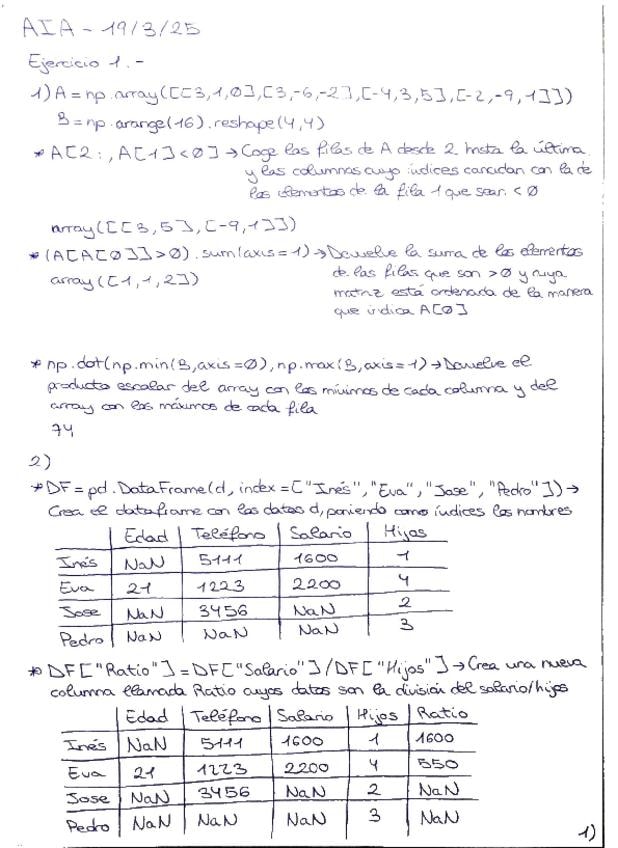 AIA - 19/3/25
Ejercicio 1.-
1) A = np.array([[3,1,0],[3,-6,-2],[-4,3,5],[-2,-9,1]])
B = np.arange(16).reshape(4,4)
* A[2:, A[1]<0] → Coge las filas de A desde 2 hasta la última
y las columnas cuyo índices coincidan con la de
los elementos de la fila 1 que sean <0
array([[3,5],[-9,1]])
* (A[A[0]]>0).sum(axis=1) → Devuelve la suma de los elementos
array([1,1,2])
de las filas que son >0 y cuya
matriz está ordenada de la manera
que indica A[0]
* np.dot(np.min(B,axis=0), np.max(B,axis=1) → Devuelve el
producto escalar del array con los mínimos de cada columna y del
array con los máximos de cada fila
74
2)
* DF = pd.DataFrame(d, index=["Inés","Eva","Jose","Pedro"]) →
Crea el dataframe con los datos d, poniendo como índices los nombres
Edad Teléfono Salario Hijos
Inés NaN 5111 1600 1
Eva 21 1223 2200 4
Jose NaN 3456 NaN 2
Pedro NaN NaN NaN 3
* DF["Ratio"] = DF["Salario"]/DF["Hijos"] → Crea una nueva
columna llamada Ratio cuyos datos son la división del salario/hijos
Edad Teléfono Salario Hijos Ratio
Inés NaN 5111 1600 1 1600
Eva 21 1223 2200 4 550
Jose NaN 3456 NaN 2 NaN
Pedro NaN NaN NaN 3 NaN
1)